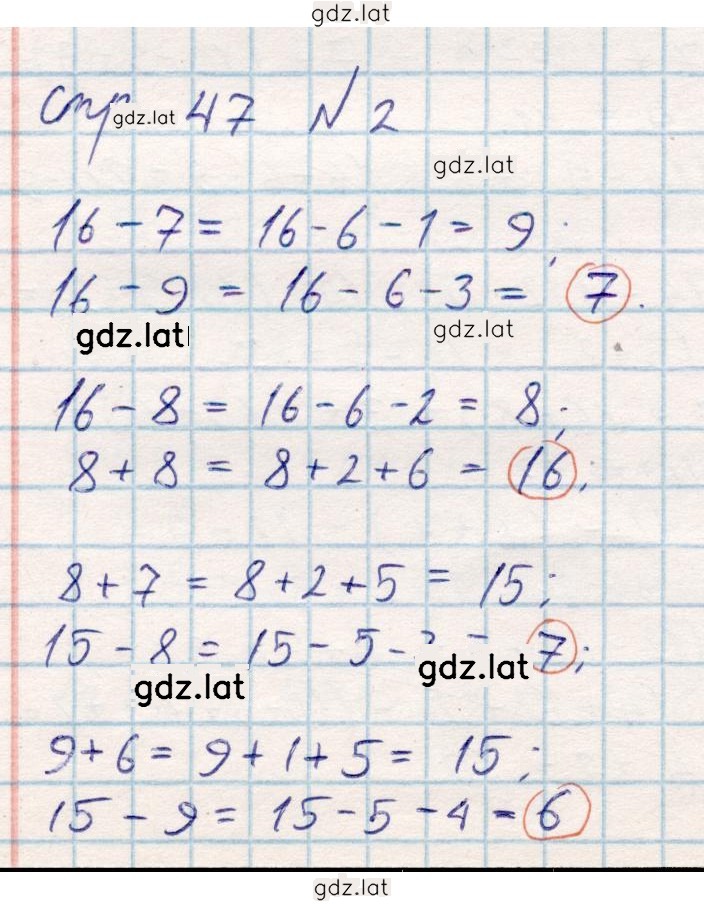 gdz.lat
стр gdz.lat 47 № 2
gdz.lat
16 - 7 = 16 - 6 - 1 = 9;
16 - 9 = 16 - 6 - 3 = 7.
gdz.lat gdz.lat
16 - 8 = 16 - 6 - 2 = 8;
8 + 8 = 8 + 2 + 6 = 16;
8 + 7 = 8 + 2 + 5 = 15;
15 - 8 = 15 - 5 - 7;
gdz.lat gdz.lat
9 + 6 = 9 + 1 + 5 = 15;
15 - 9 = 15 - 5 - 4 = 6
gdz.lat